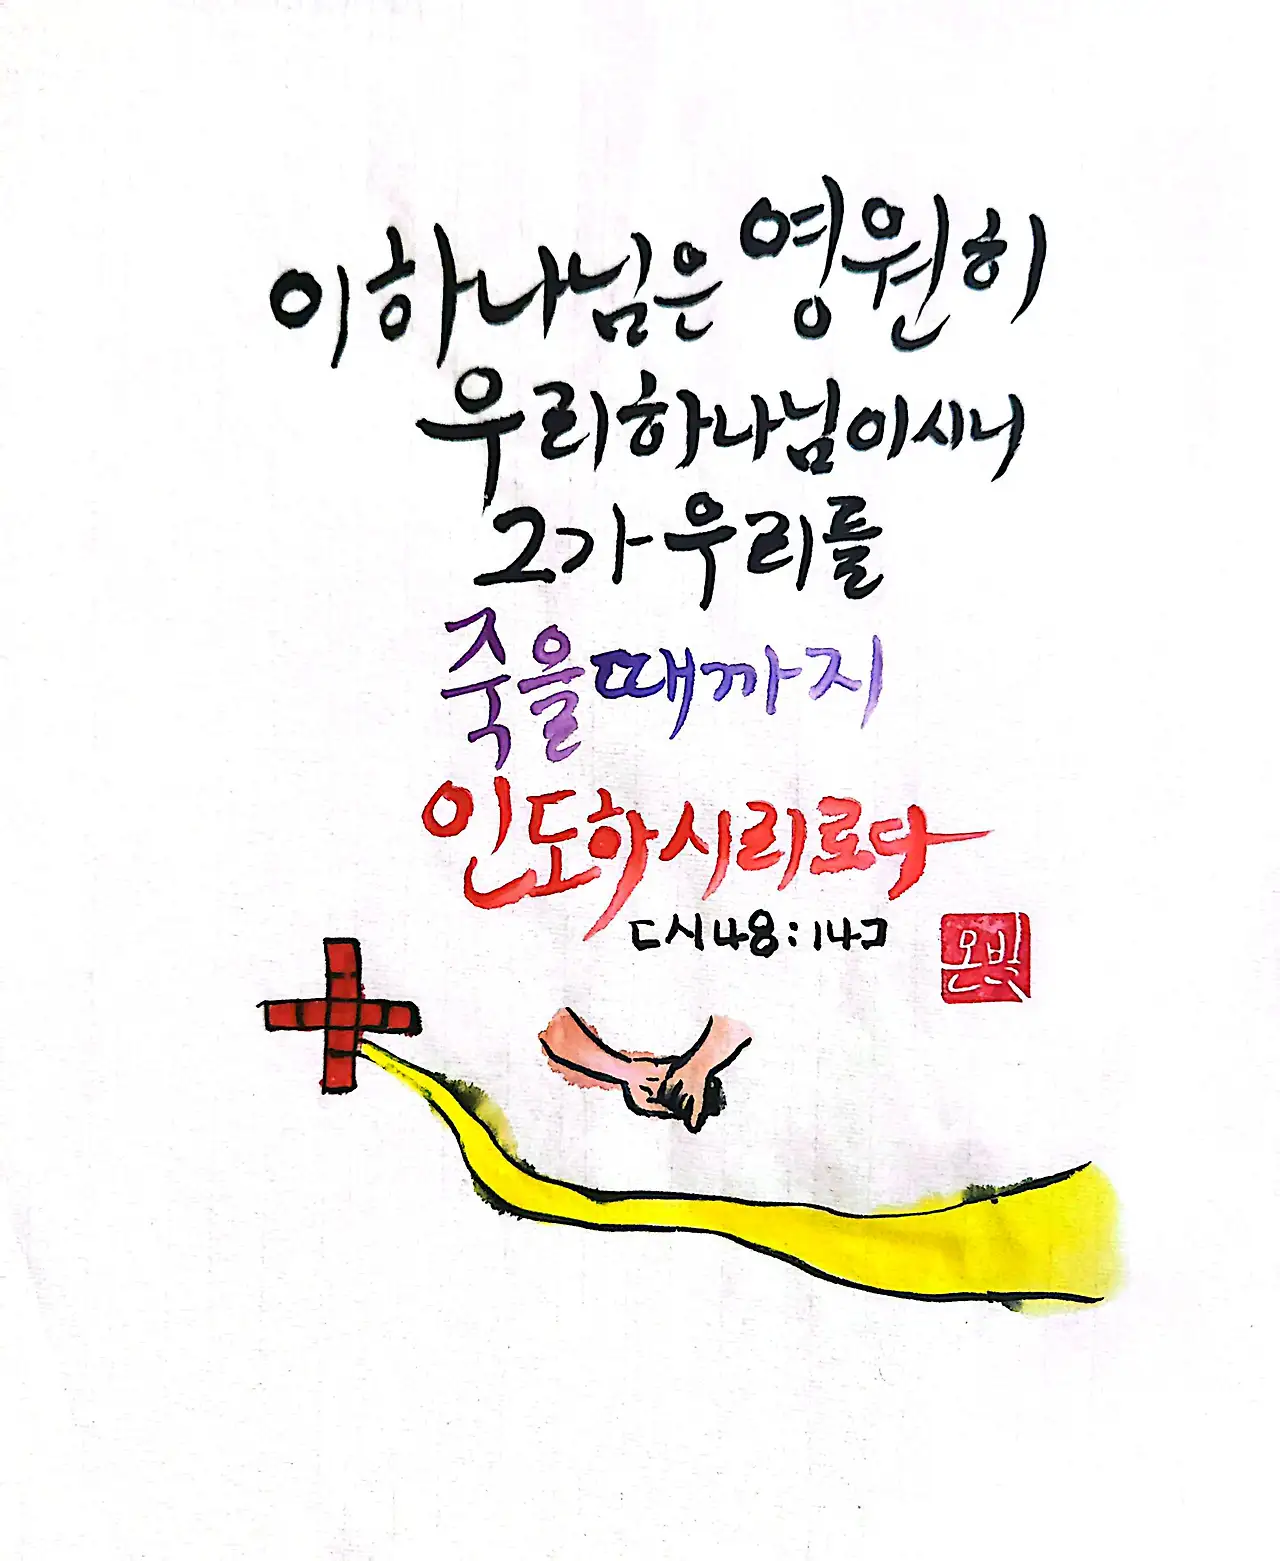 이 하나님은 영원히
우리 하나님이시니
그가 우리를
죽을 때까지
인도하시리로다
[시48:14]
온빛